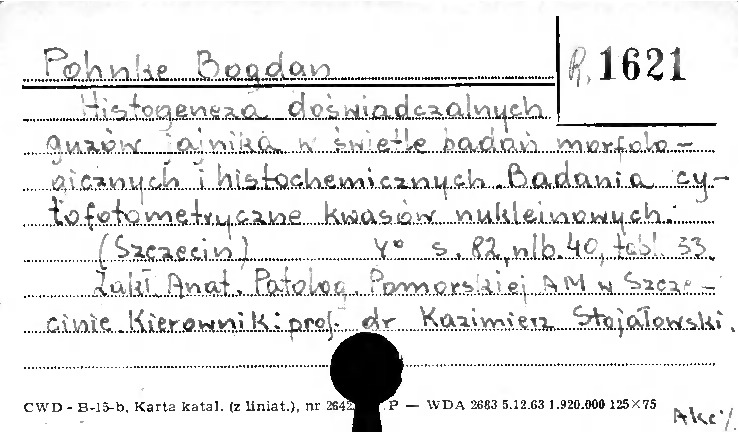 Pohnke Bogdan
R. 1621
Histogeneza doświadczalnych
guzów jajnika w świetle badań morfolo-
gicznych i histochemicznych. Badania cy-
tofotometryczne kwasów nukleinowych.
(Szczecin) 4° s. 82, nlb. 40, tabl. 33.
Zakł. Anat. Patolog. Pomorskiej AM w Szcze-
cinie. Kierownik: prof. dr Kazimierz Stojałowski.
CWD - B-15-b, Karta katal. (z liniat.), nr 2642 P — WDA 2683 5.12.63 1.920.000 125×75